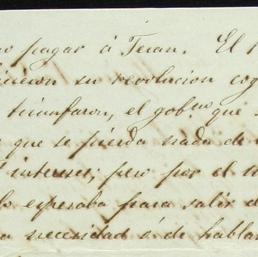 pagar á Teran. El
su revolucion cog
triunfaron, el gob.no que
que se pierda nada de
interues; pero por el
lo esperaba para salir d
a necesidad ó de hablar